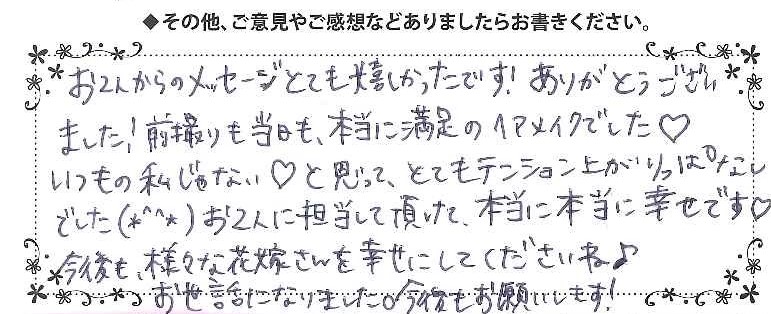 ◆その他、ご意見やご感想などありましたらお書きください。
お2人からのメッセージとても嬉しかったです！ありがとうござい
ました！前撮りも当日も、本当に満足のヘアメイクでした♡
いつもの私じゃない♡と思って、とてもテンション上がりっぱなし
でした(*^^*)お2人に担当して頂けて、本当に本当に幸せです♡
今後も、様々な花嫁さんを幸せにしてくださいね♪
お世話になりました。今後もお願いします！